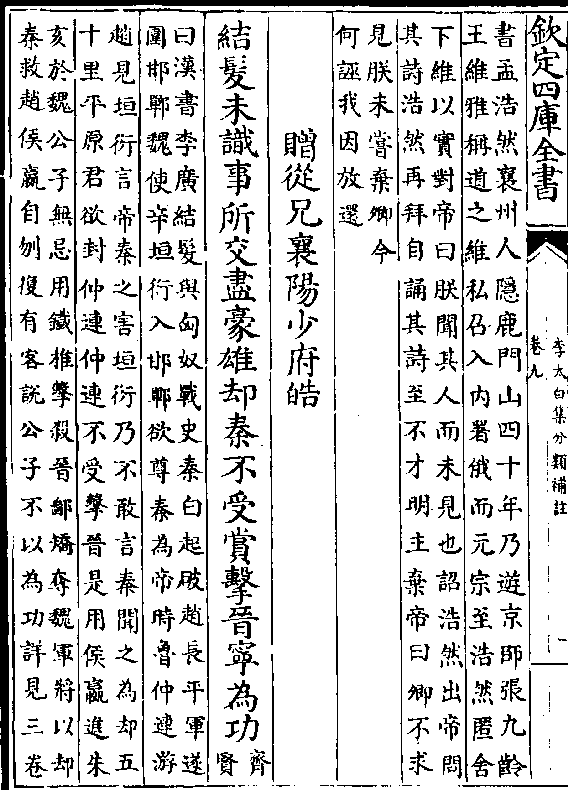 欽定四庫全書
李太白集分類補註
卷九
一
書孟浩然襄州人隱鹿門山四十年乃遊京師張九齡
王維雅稱道之維私召入内署俄而元宗至浩然匿舍
下維以實對帝曰朕聞其人而未見也詔浩然出帝問
其詩浩然再拜自誦其詩至不才明主棄帝曰卿不求
見朕未嘗棄卿今
何誣我因放還
贈從兄襄陽少府皓
結髮未識事所交盡豪雄却秦不受賞擊晉寧為功
齊
賢
曰漢書李廣結髮與匈奴戰史秦白起破趙長平軍遂
圍邯鄲魏使辛垣衍入邯鄲欲尊秦為帝時魯仲連游
趙見垣衍言帝秦之害垣衍乃不敢言秦聞之為却五
十里平原君欲封仲連仲連不受擊晉是用侯嬴進朱
亥於魏公子無忌用鐵椎擊殺晉鄙矯奪魏軍將以却
秦救趙侯嬴自刎復有客説公子不以為功詳見三卷